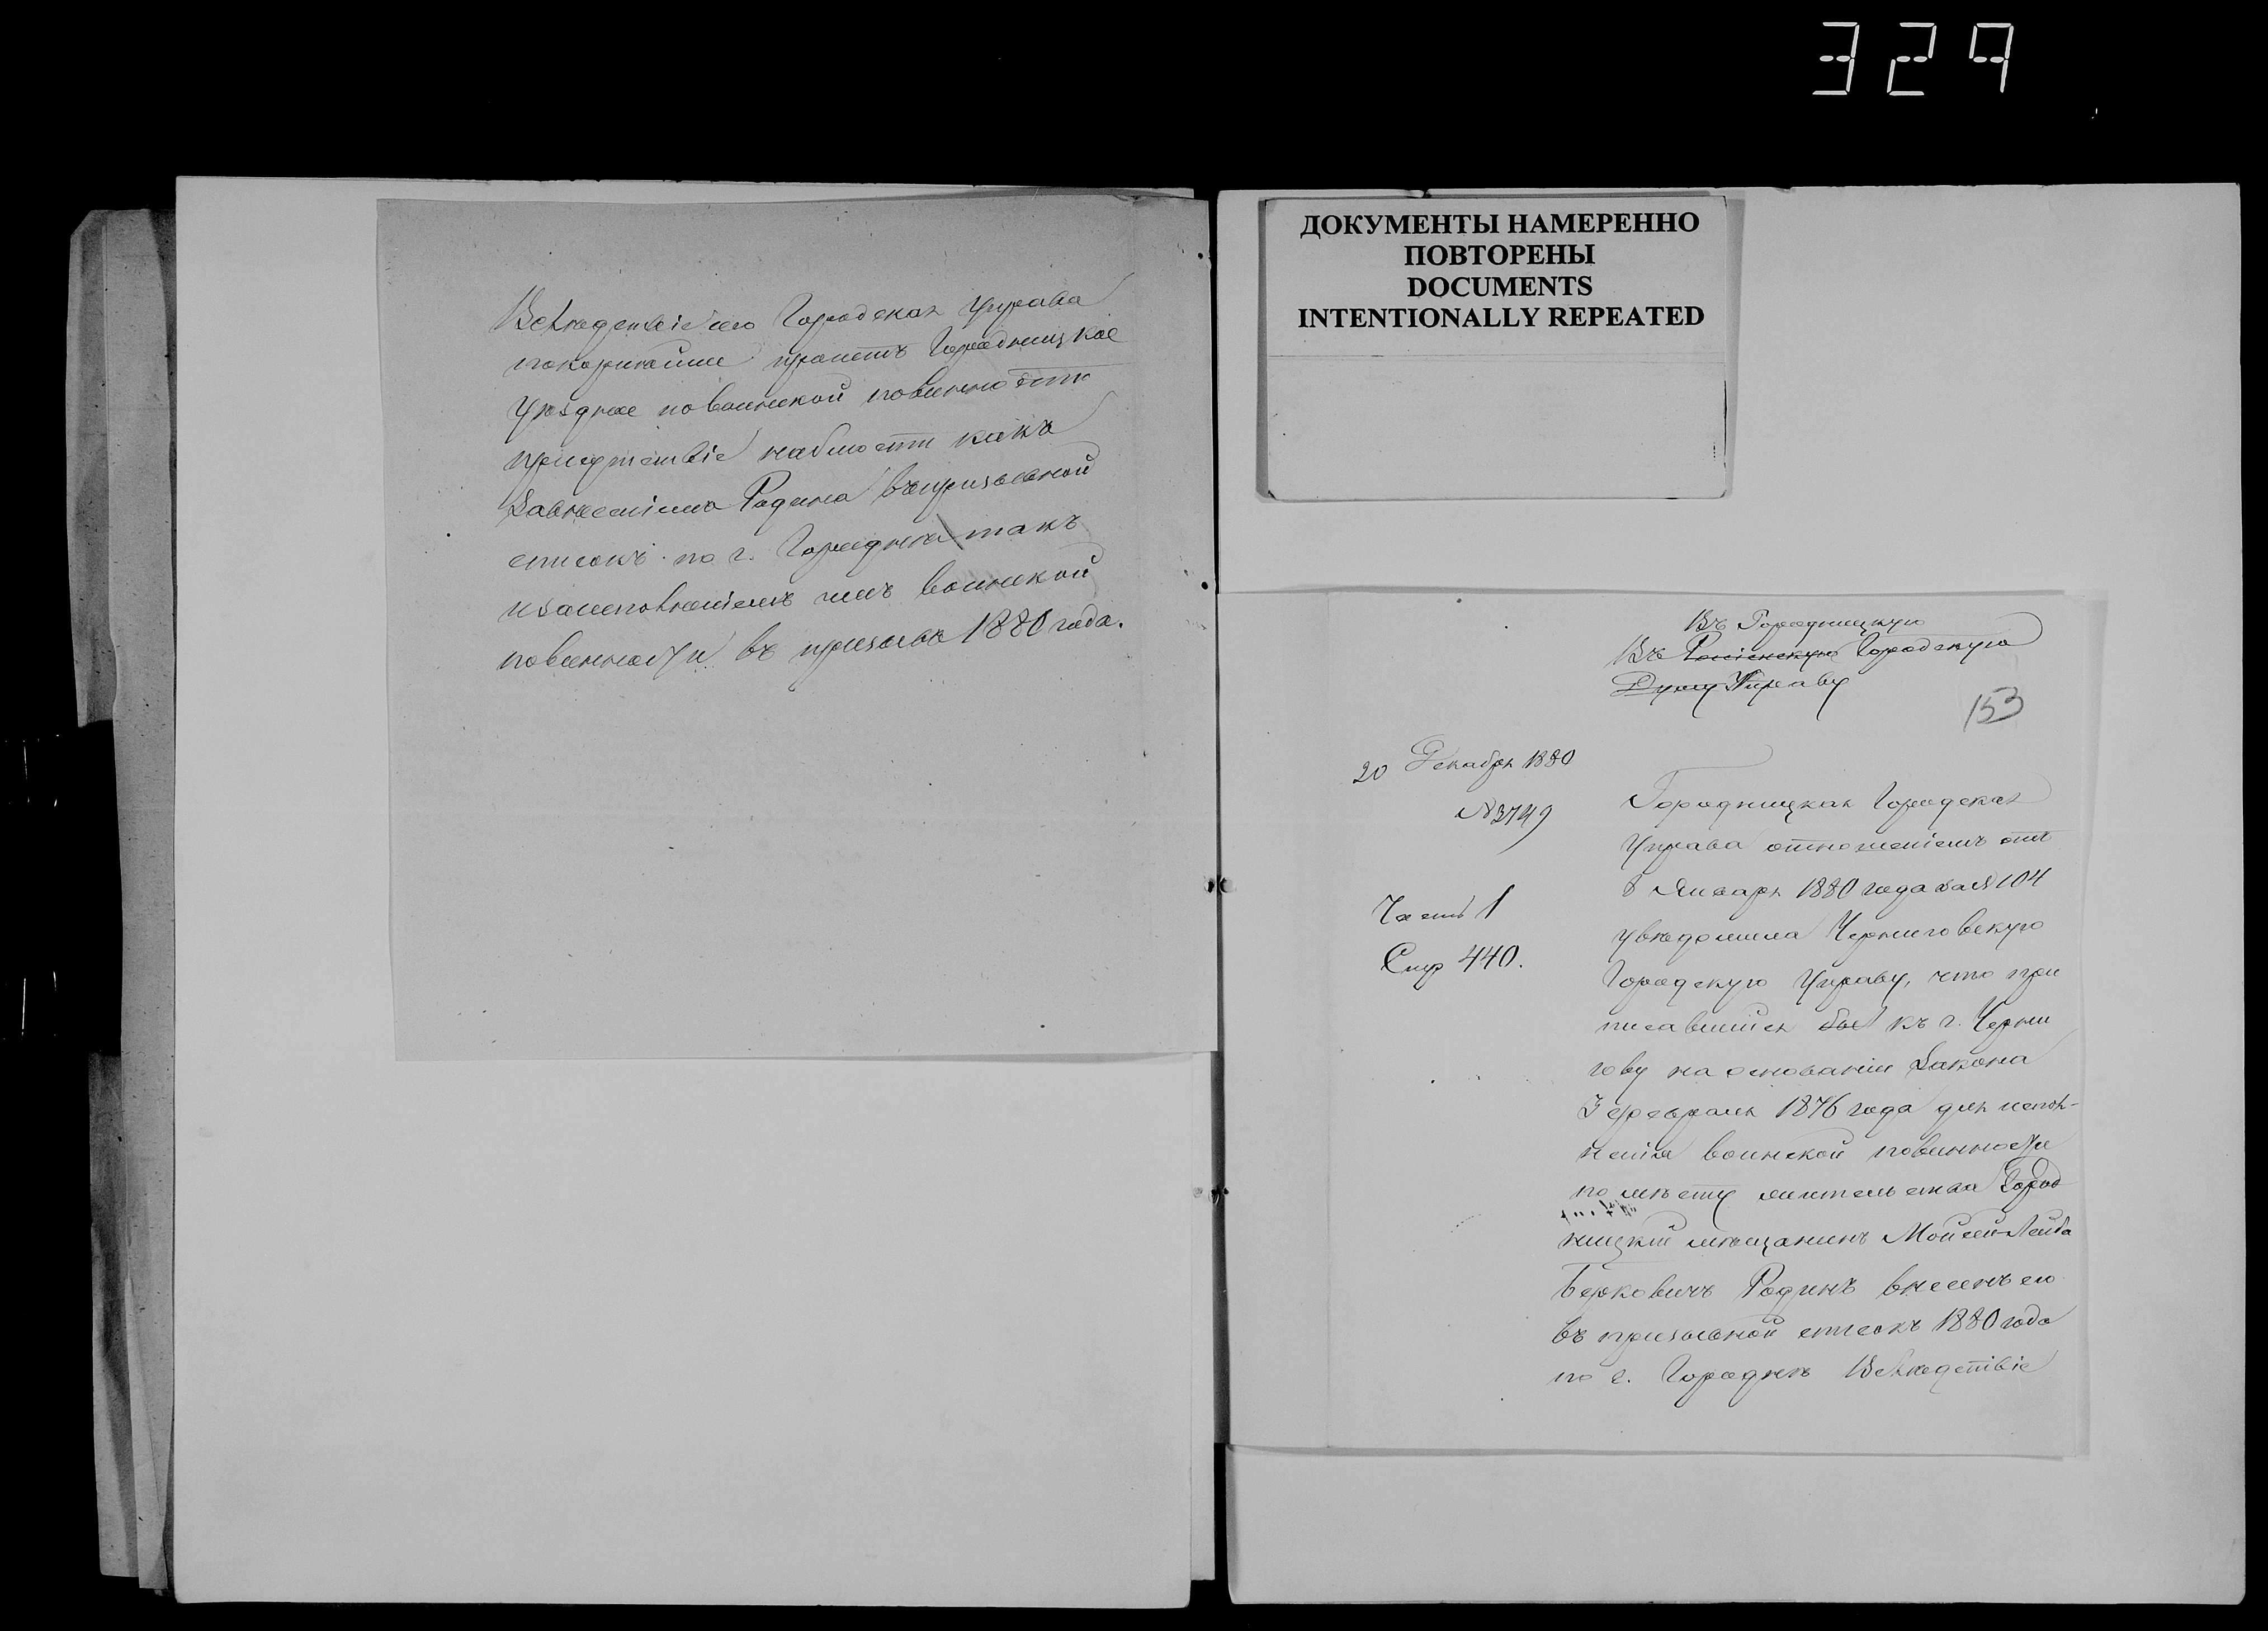 329
Вслѣдствіе сего Городская Управа
покорнѣйше проситъ Городницкое
Уѣздное по воинской повинности
присутствіе наблюсти какъ
за внесеніемъ Радина въ призывной
списокъ по г. Городнѣ такъ
и за исполненіемъ имъ воинской
повинности въ призывѣ 1880 года.
ДОКУМЕНТЫ НАМЕРЕННО
ПОВТОРЕНЫ
DOCUMENTS
INTENTIONALLY REPEATED
Въ Городницкую
Въ Городскую
Думу Управу
153
20 Декабря 1880
№ 3749
Часть 1
Стр 440.
Городницкая Городская
Управа отношеніемъ отъ
8 Января 1880 года за № 104
увѣдомила Черниговскую
Городскую Управу, что при
писавшійся къ г. Черни
гову на основаніи Закона
3 февраля 1876 года для испол-
ненія воинской повинности
по мѣсту жительства Город
ницкій мѣщанинъ Мойсей-Лейба
Берковичъ Радинъ внесенъ ею
въ призывной списокъ 1880 года
по г. Городнѣ Вслѣдствіе